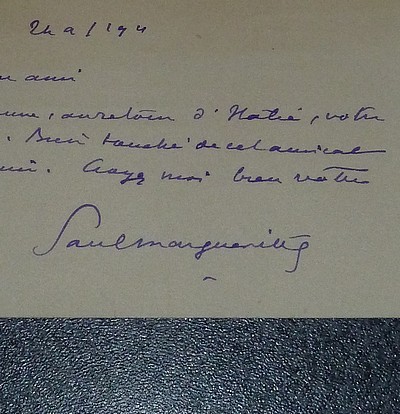 ami
, au retour d'Italie, votre
. Bien touché de cet amical
. Croyez moi bien votre
Paul Margueritte